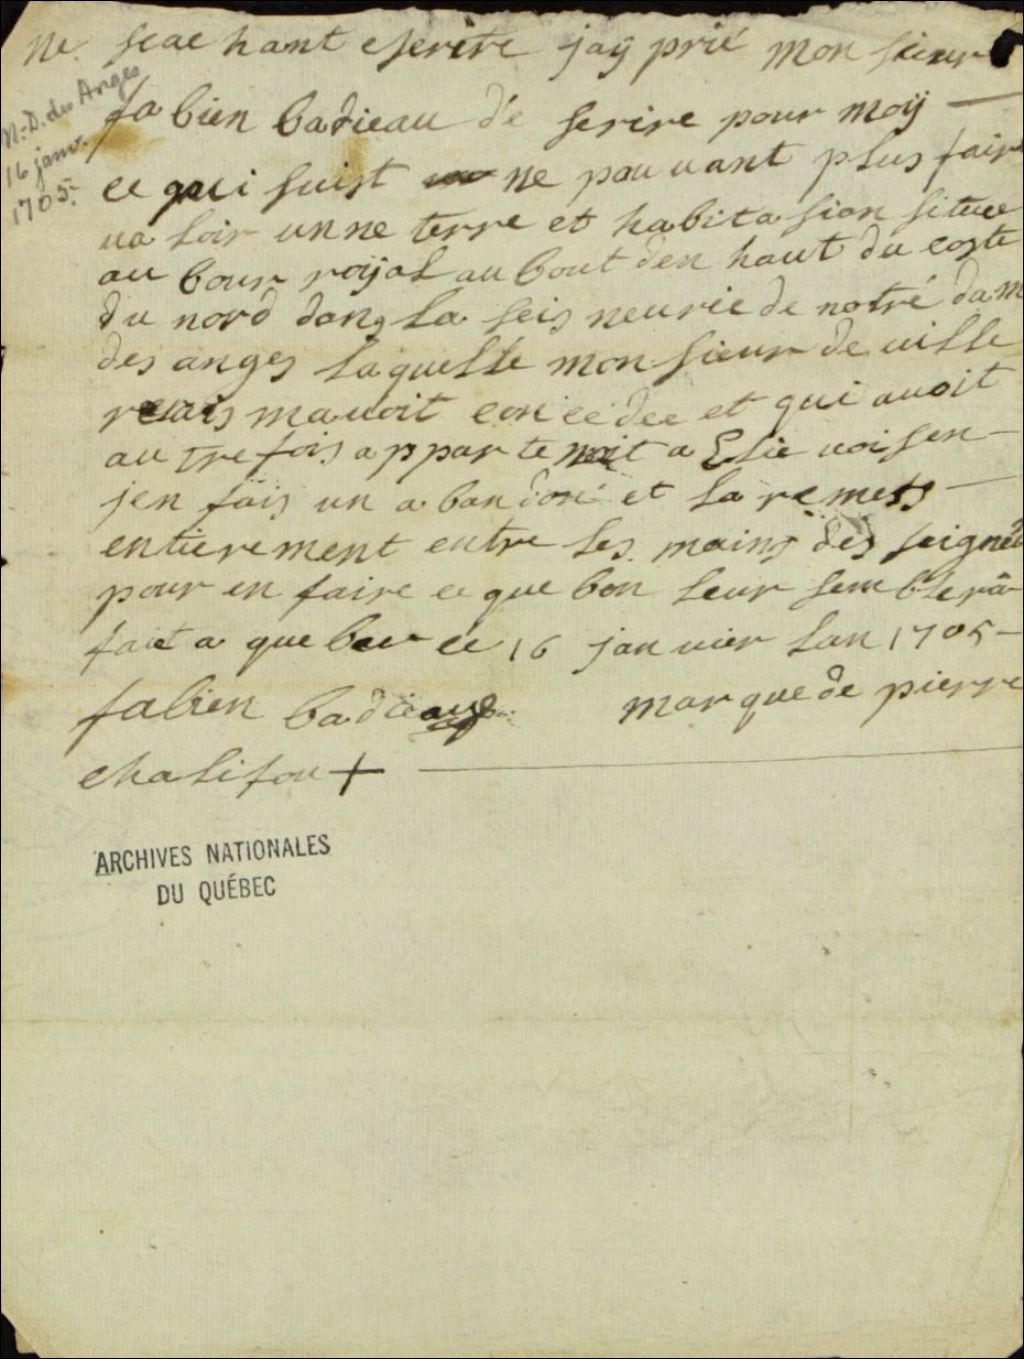 ne scachant escrire jaÿ prié mon sieur
N.-D. des Anges
16 janv.
1705.
fabien badieau dé scrire pour moÿ
ce qui suist ne pouvant plus faire
valoir unne terre et habitasion situee
au bour roÿal au bout den haut du coste
du nord dans la seisneurie de notré dam
des anges laquelle monsieur de ville
relais mavoit concedee et qui avoit
autrefois appartenoit a Elie voisen
jen fais un abandoné et la remets
entierement entre les mains des seigneu
pour en faire ce que bon leur semblera
fait a quebec ce 16 janvier lan 1705
fabien badieau marque de pierre
chalifou +
ARCHIVES NATIONALES
DU QUÉBEC